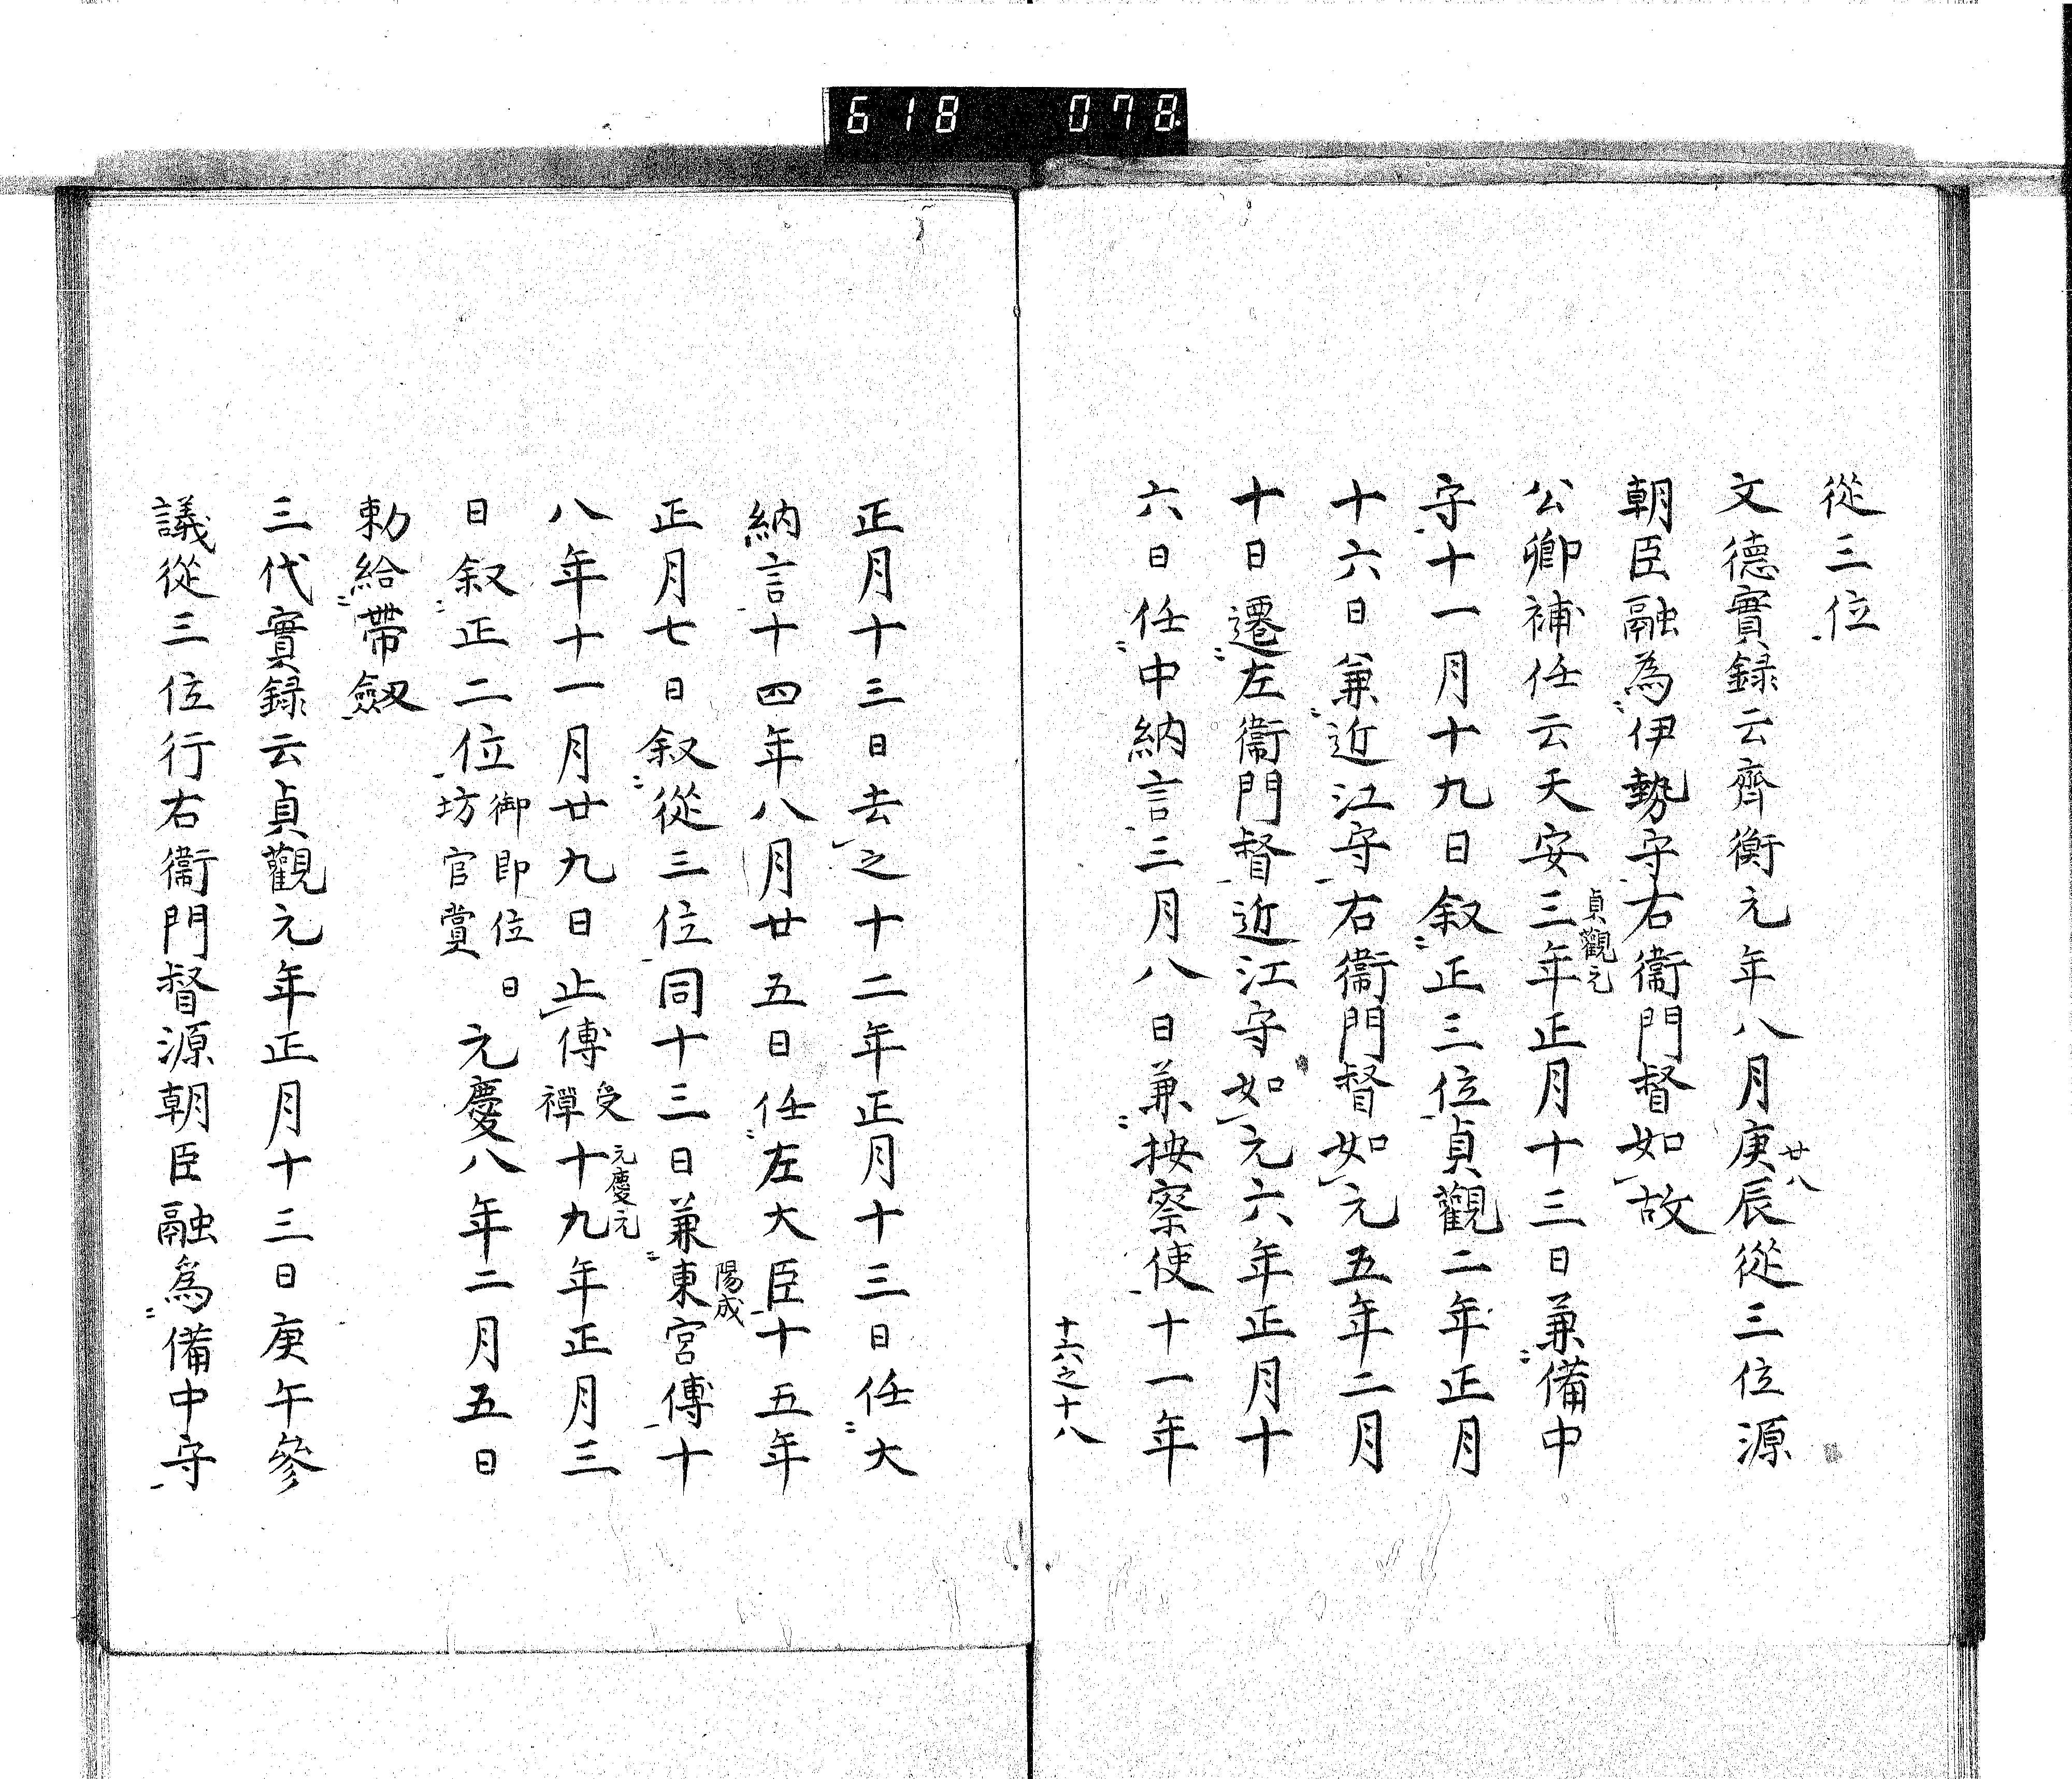 618 078
從三位
文德實録云齊衡元年八月庚辰從三位源
廿八
朝臣融為伊勢守右衞門督如故
公卿補任云天安三年正月十三日兼備中
貞觀元
守十一月十九日叙正三位貞觀二年正月
十六日兼近江守右衞門督如元五年二月
十日遷左衞門督近江守如元六年正月十
六日任中納言三月八日兼按察使十一年
十六之十八
正月十三日去之十二年正月十三日任大
納言十四年八月廿五日任左大臣十五年
正月七日叙從三位同十三日兼東宮傅十
陽成
八年十一月廿九日止傅受禪十九年正月三
元慶元
日叙正二位御即位日坊官賞元慶八年二月五日
勅給帶劔
三代實録云貞觀元年正月十三日庚午參
議從三位行右衞門督源朝臣融爲備中守